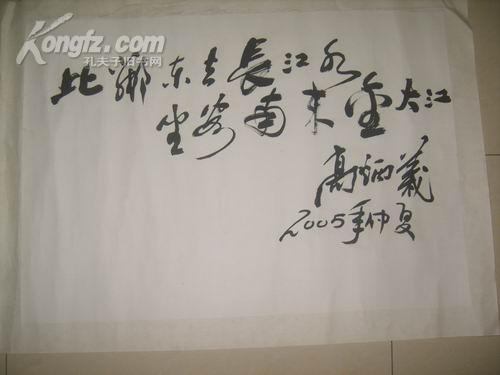 Kongfz.com
孔夫子旧书网
东去長江水
南来 大江
高炳義
2005年仲夏